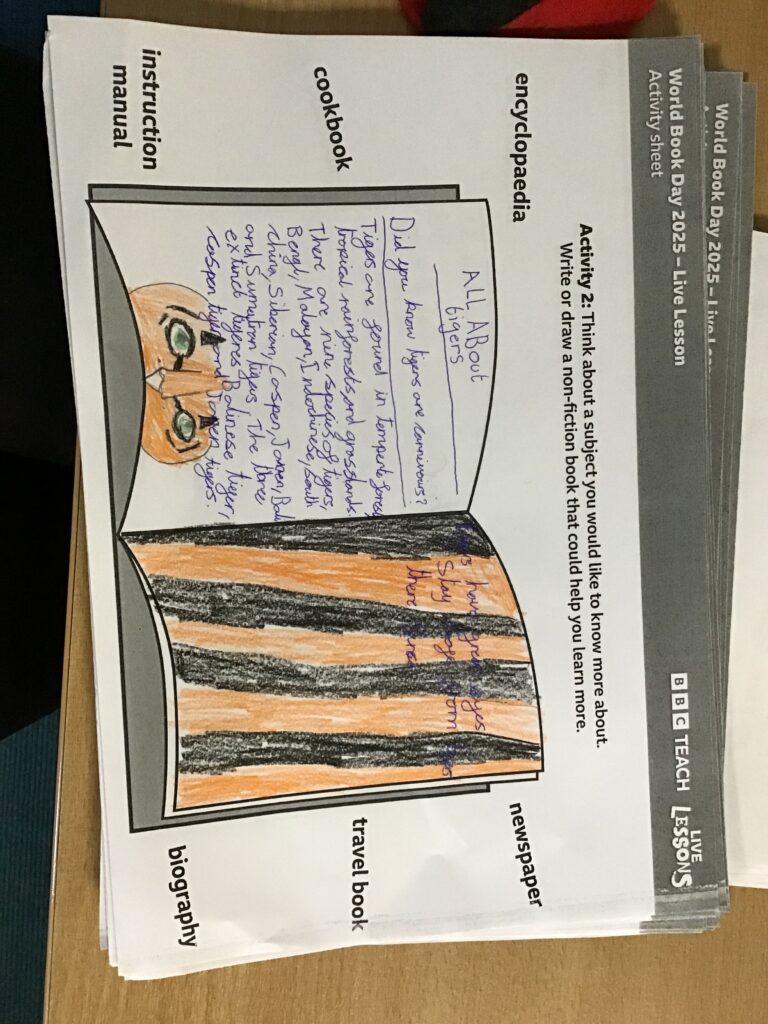 World Book Day 2025 – Live Lesson
World Book Day 2025 – Live Lesson
Activity sheet
BBC TEACH LIVE LESSONS
Activity 2: Think about a subject you would like to know more about.
Write or draw a non-fiction book that could help you learn more.
encyclopaedia
cookbook
instruction
manual
newspaper
travel book
biography
ALL ABout
tigers
Did you know tigers are carnivrous?
Tigers are found in temperte forest
tropical rainforests and grasslands.
There are nine species of tigers,
Bengl, Malayen, Indochinese, South
china, Siberian, Caspen, Javen, Bali
and Sumatron tigers. The three
extinct tigeres Balinese tiger,
caspen tiger and Javen tigers.
have green eyes
Stay away from
there